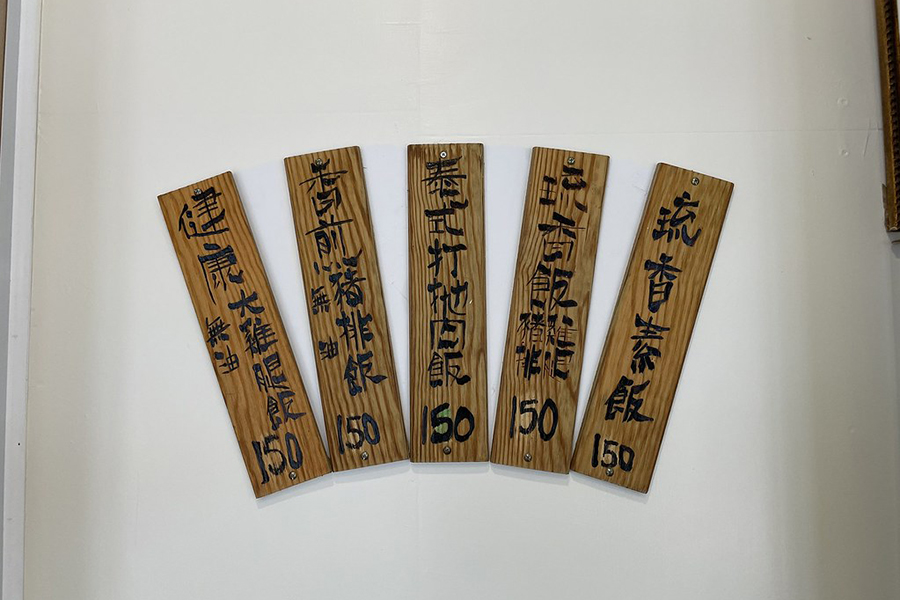 健康大雞腿飯
無油
150
香煎豬排飯
無油
150
泰式打拋肉飯
150
琉香飯
雞腿
豬排
150
琉香素飯
150